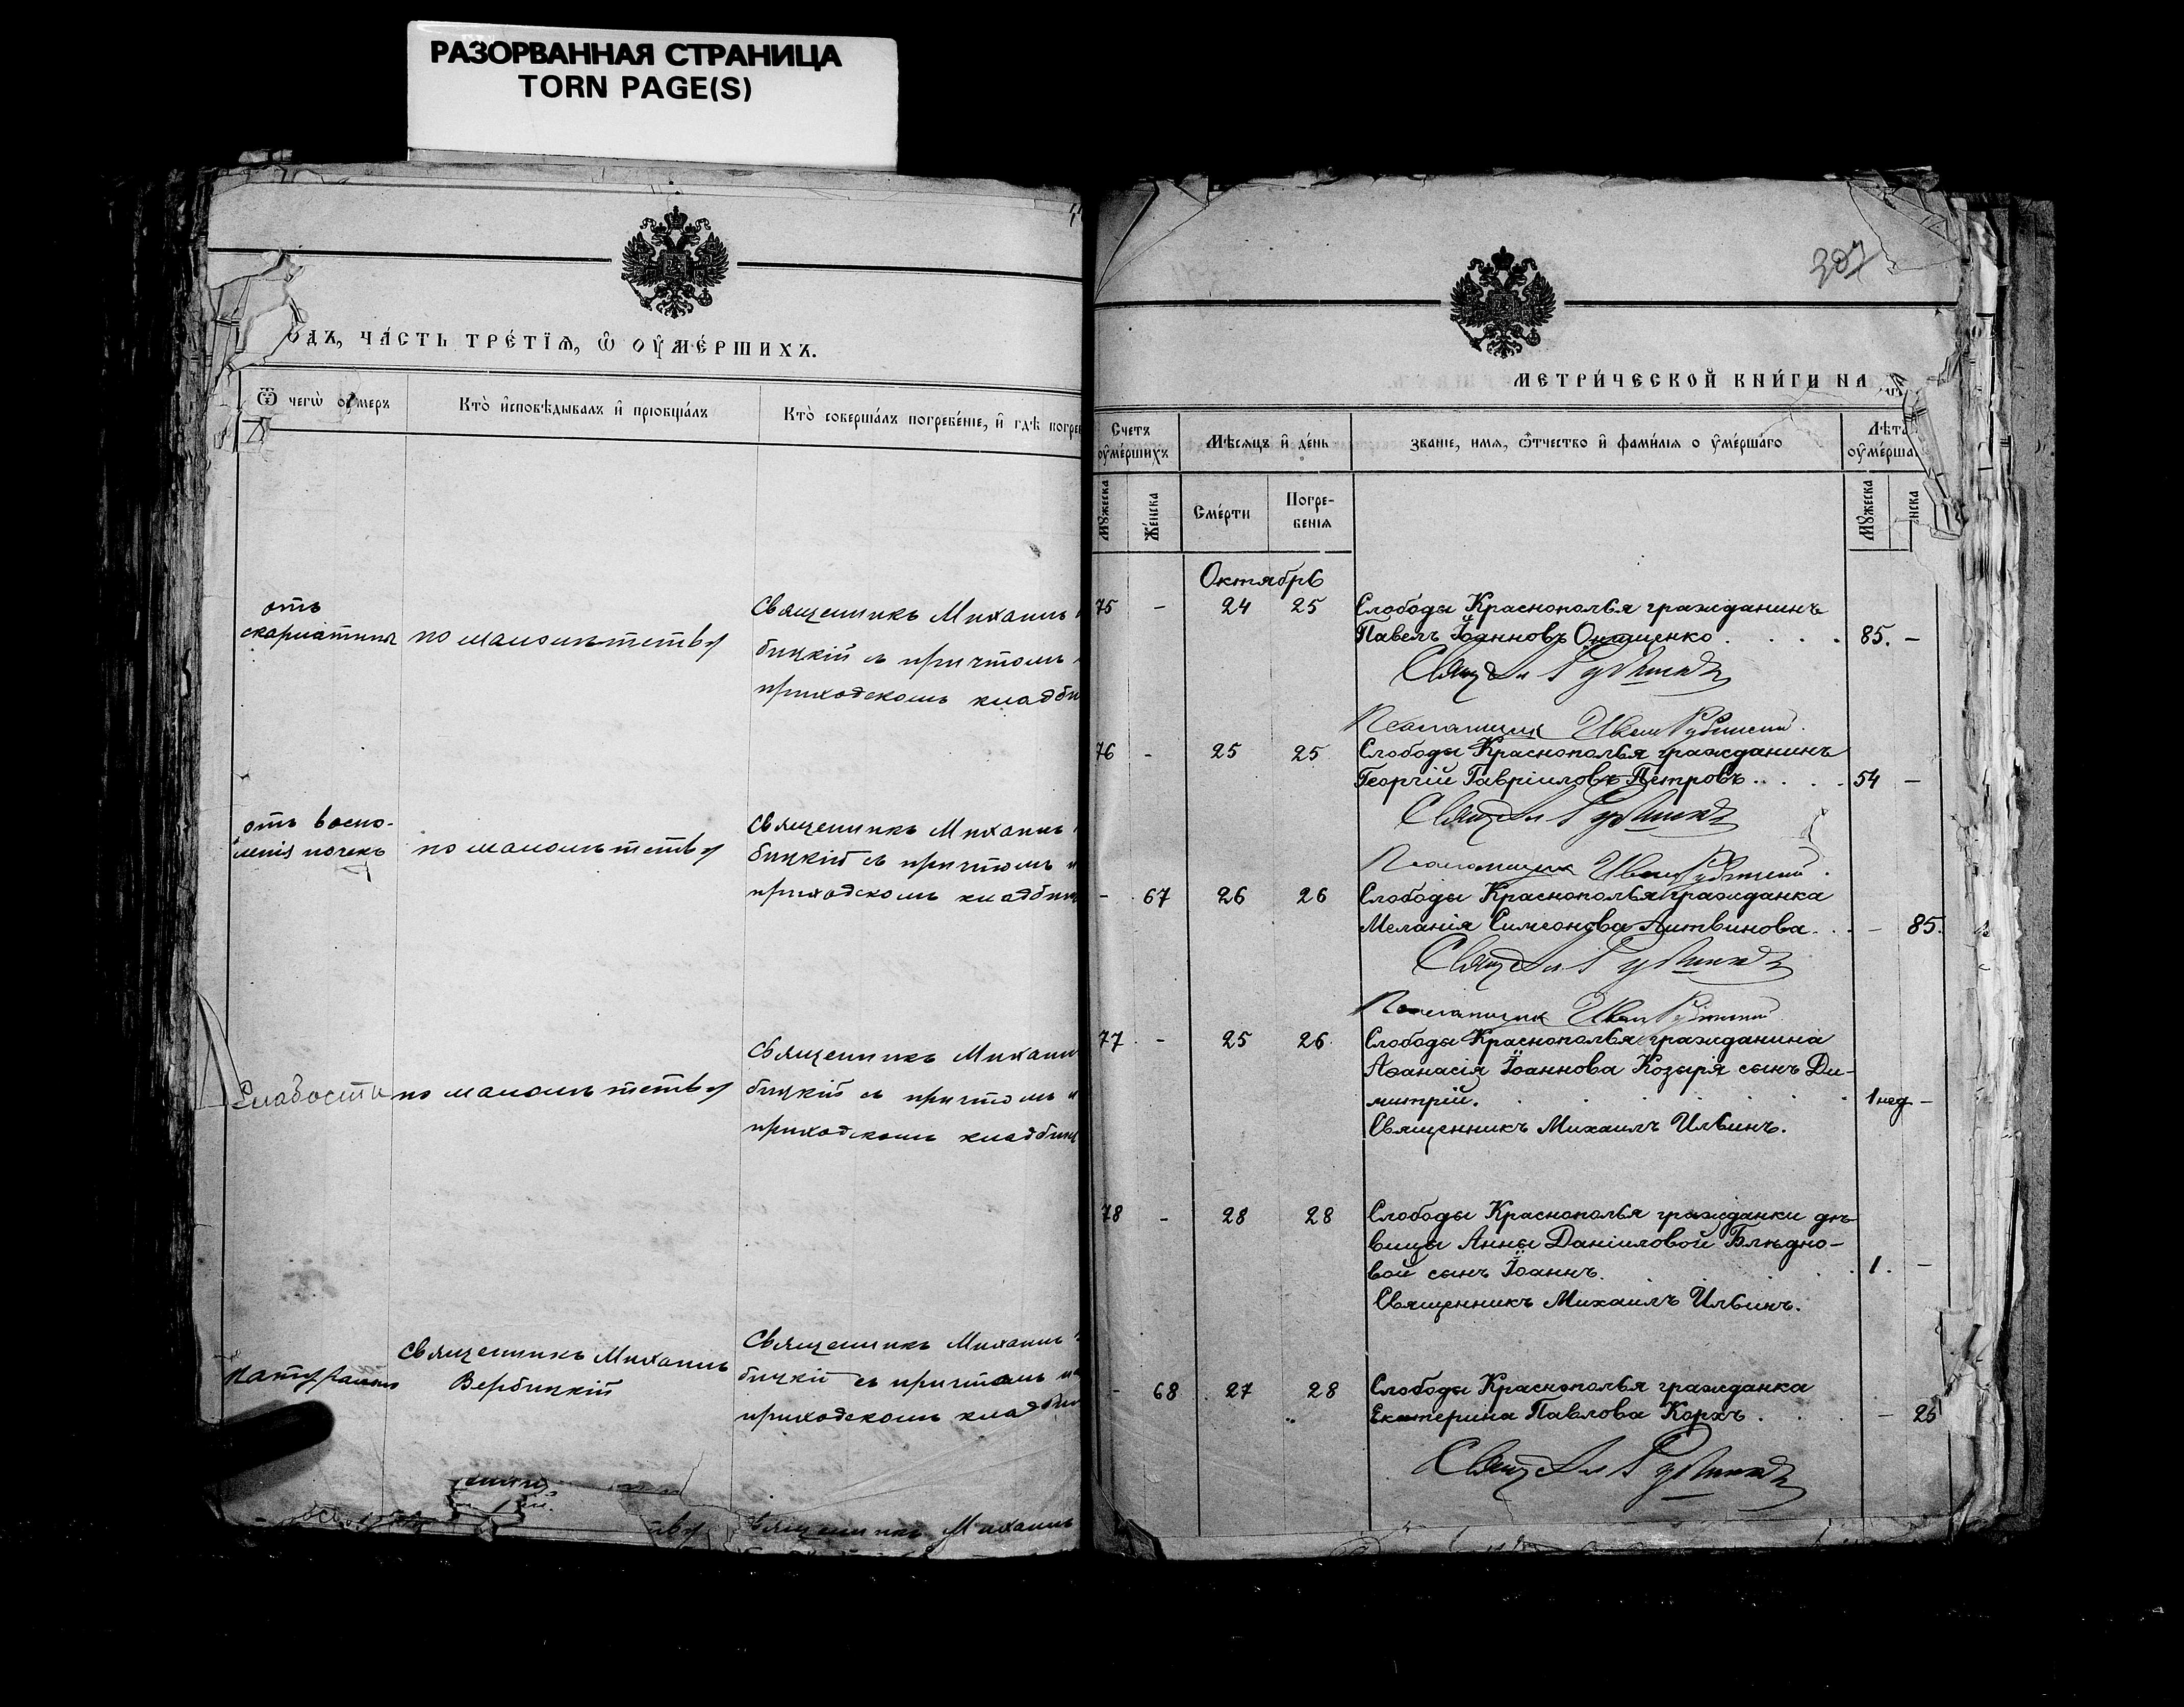 РАЗОРВАННАЯ СТРАНИЦА
TORN PAGE(S)
одъ, ча́сть тре́тїѧ, ѡ҆ оу҆ме́ршихъ.
Ѿ чегѡ̀ оумеръ
Кто̀ и҆сповѣдывалъ и҆ прїобща́лъ
Кто̀ соверша́лъ погребе́нїе, и҆ гдѣ̀ погре
отъ
скарлатины
по малолѣтству
Священникъ Михаилъ
бицкій съ причтомъ
приходскомъ кладби
отъ воспа-
ленія почекъ
по малолѣтству
Священникъ Михаилъ
бицкій съ причтомъ
приходскомъ кладбищ
Слабости
по малолѣтству
Священникъ Михаил
бицкій съ причтомъ
приходскомъ кладбищ
натурально
Священникъ Михаилъ
Вербицкій
Священникъ Михаилъ
бицкій съ причтомъ на
приходскомъ кладби
Священникъ Михаилъ
307
МЕТРИ́ЧЕСКОЙ КНИ́ГИ НА
Счетъ оу҆ме́ршихъ
Мѣ́сяцъ и҆ де́нь
званїе, имя, ѻ҆́тчество и҆ фами́лїя о у҆ме́ршаго
Лѣта оу҆ме́рша
Мꙋжеска
Же́нска
Сме́рти
Погре-
бенїя
Мꙋжеска
нска
Октябрь
75 - 24 25 Слободы Краснополья гражданинъ
Павелъ Іоанновъ Онищенко . . . . 85. -
Псаломщик Иван Рубинский.
76 - 25 25 Слободы Краснополья гражданинъ
Георгій Гавріиловъ Петровъ . . . . 54 -
Псаломщик Иван Рубинский.
- 67 26 26 Слободы Краснополья гражданка
Меланія Симеонова Литвинова. . . - 85.
Псаломщик Иван Рубинский
77 - 25 26 Слободы Краснополья гражданина
Аѳанасія Іоаннова Козыря сынъ Ди-
митрій. . . . . . . 1 нед -
Священникъ Михаилъ Ильинъ.
78 - 28 28 Слободы Краснополья гражданки дѣ-
вицы Анны Даніиловой Блѣдно-
вой сынъ Іоаннъ. . . . 1. -
Священникъ Михаилъ Ильинъ.
- 68 27 28 Слободы Краснополья гражданка
Екатерина Павлова Коржъ . . . - 25